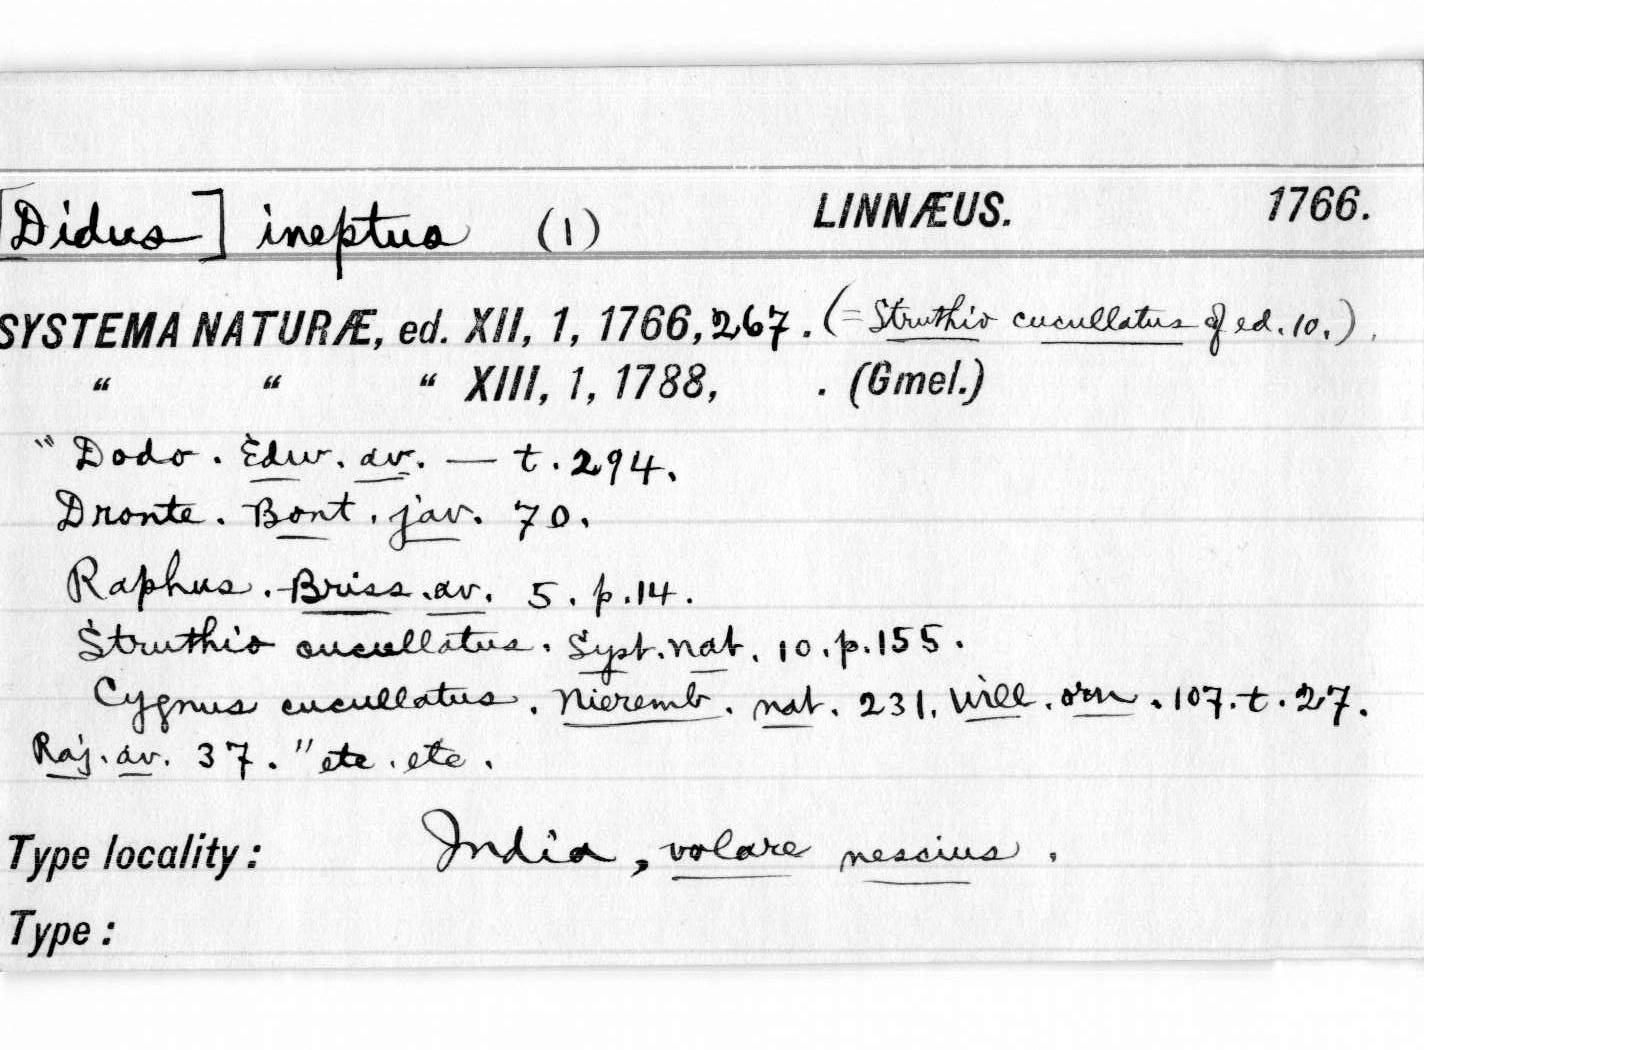 [Didus] ineptus (1) LINNÆUS. 1766.
SYSTEMA NATURÆ, ed. XII, 1, 1766, 267. (= Struthio cucullatus of ed. 10.).
“ “ “ XIII, 1, 1788, . (Gmel.)
"Dodo. Edw. av. — t. 294.
Dronte. Bont. jav. 70.
Raphus. Briss. av. 5. p. 14.
Struthio cucullatus. Syst. nat. 10. p. 155.
Cygnus cucullatus. Nieremb. nat. 231. Will. orn. 107. t. 27.
Raj. av. 37." etc. etc.
Type locality: India, volare nescius.
Type: